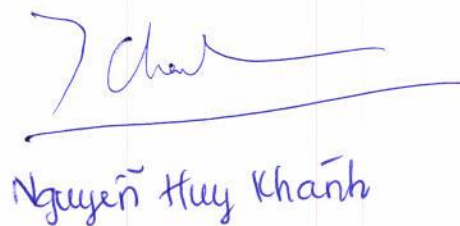 Nguyễn Huy Khánh